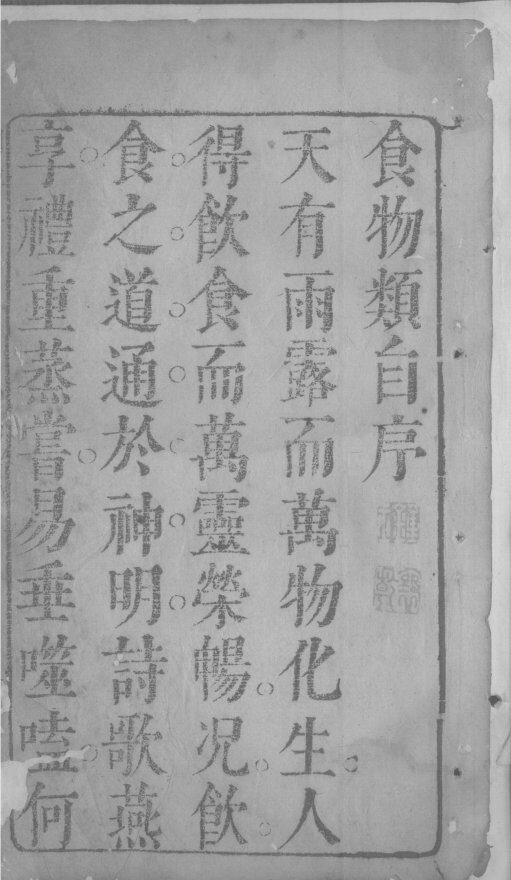 食物類自序
天有雨露而萬物化生人
得飲食而萬靈榮暢况飲
食之道通於神明詩歌燕
享禮重蒸嘗易垂噬嗑何